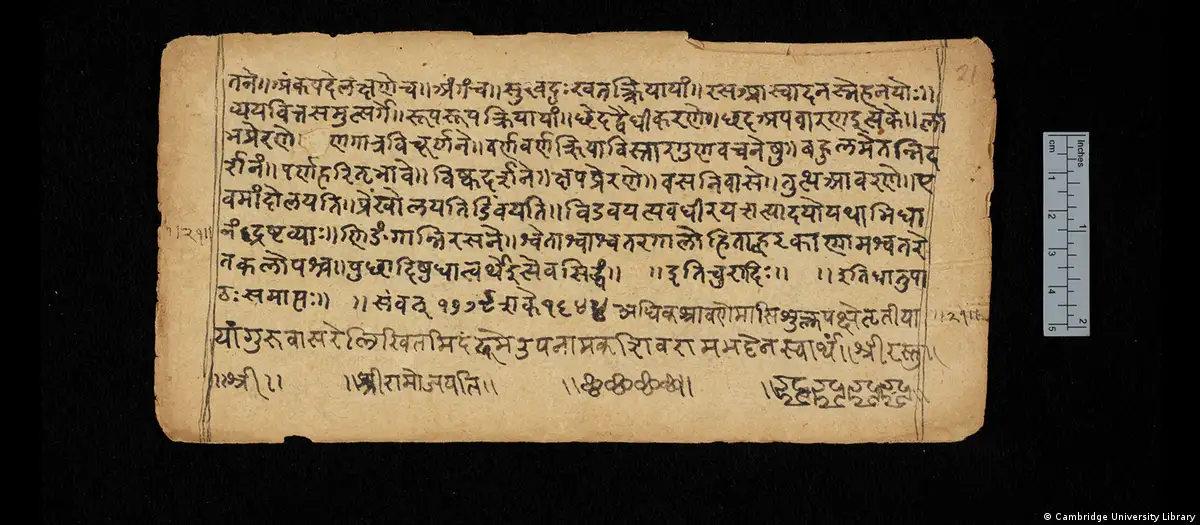 तने॥अंकपदेलक्षणेच॥अंगच॥सुखदुःखतत्क्रियायां॥रसआस्वादनस्नेहनयोः॥
व्ययवित्तसमुत्सर्गे॥रूपरूपक्रियायां॥छेदद्वैधीकरणे॥छदअपवारणइत्येके॥ला
भप्रेरणे व्रणगात्रविचूर्णने॥वर्णवर्णक्रियाविस्तारगुणवचनेषु॥बहुलमेतन्निद
र्शनं॥पर्णहरितभावे॥विष्कदर्शने॥क्षपप्रेरणे॥वसनिवासे॥तुत्थआवरणे॥ए
वमांदोलयति॥प्रेंखोलयति विडंबयति॥ अवधीरय इत्यादयोयथाभिधा
नंद्रष्टव्याः॥णिङंगान्निरसने॥श्वेताश्वाश्वतरगालोडिताह्वरकाणामश्वतरे
तकलोपश्च॥पुच्छादिषुधात्वर्थइत्येवसिद्धं॥ ॥इतिचुरादिः॥ ॥इतिधातुपा
ठःसमाप्तः॥ ॥संवत् शके अधिकश्रावणेमासिशुक्लपक्षेतृतीया
यांगुरुवासरेलिखितमिदं उपनामक स्वार्थं॥श्रीरस्तु॥
॥श्री॥ ॥श्रीरामोजयति॥
॥२१॥
॥२१॥
21
cm 2 3 4 5
Inches 1 2
© Cambridge University Library